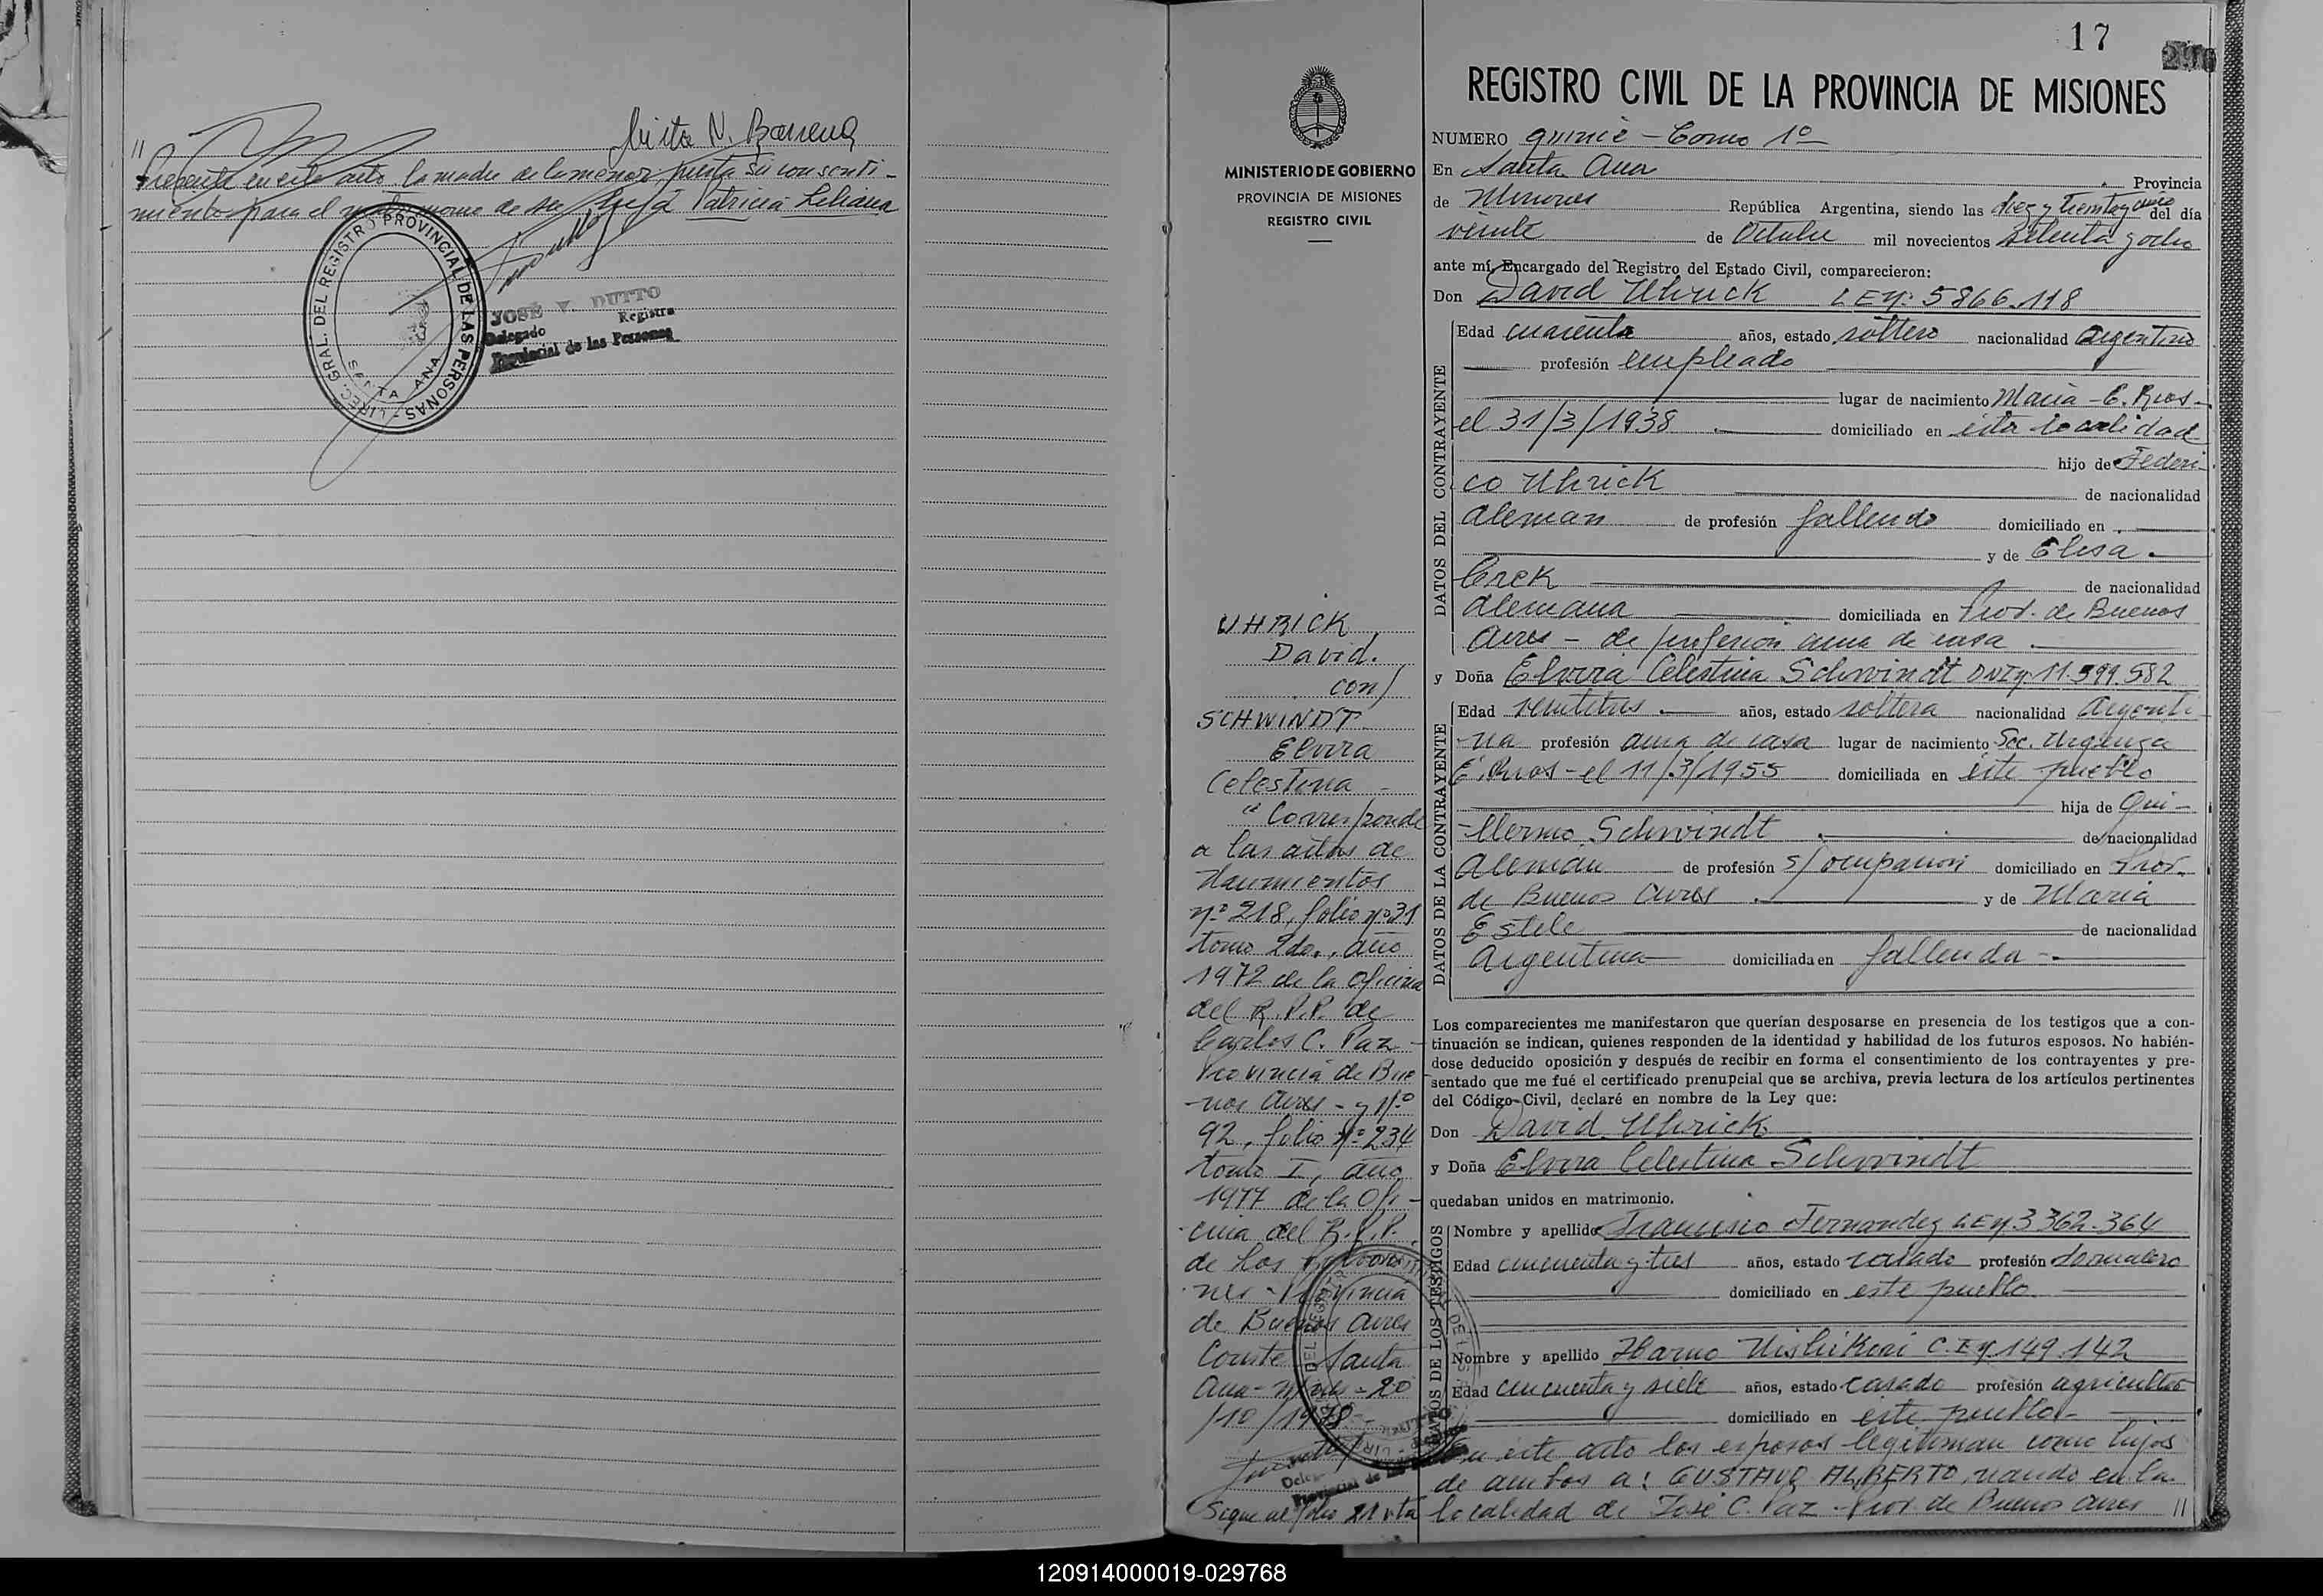 Mirta N. Barrena
//
Presente en este acto la madre de la menor, presta su consenti-
miento para el matrimonio de su hija Patricia Liliana
DIREC. GRAL. DEL REGISTRO PROVINCIAL DE LAS PERSONAS
SANTA ANA
JOSÉ V. DUTTO
Delegado Registro
Provincial de las Personas
17
MINISTERIO DE GOBIERNO
PROVINCIA DE MISIONES
REGISTRO CIVIL
UHRICK
David.
con/
SCHWINDT
Elvira
Celestina -
"Corresponde
a las actas de
Nacimientos
nº 218, folio nº 31
tomo 2do., año
1972 de la Oficina
del R.P.P. de
Carlos C. Paz -
Provincia de Bue
-nos Aires - y Nº
92, folio Nº 234
tomo I, año
1977 de la Ofi-
cina del R.P.P.
de Los
nes - Provincia
de Buenos Aires
Conste Santa
Ana - Mnes - 20
/10/1978 -
Sigue al folio 21 vta
REGISTRO CIVIL DE LA PROVINCIA DE MISIONES
NUMERO quince - Tomo 1º
En Santa Ana Provincia
de Misiones República Argentina, siendo las diez y treinta y cinco del día
veinte de Octubre mil novecientos setenta y ocho
ante mí, Encargado del Registro del Estado Civil, comparecieron:
Don David Uhrick L E Nº: 5866.118
DATOS DEL CONTRAYENTE
Edad cuarenta años, estado soltero nacionalidad Argentino
profesión empleado
lugar de nacimiento Maria - E. Rios -
el 31/3/1938 domiciliado en esta localidad
hijo de Federi-
co Uhrick de nacionalidad
Aleman de profesión fallecido domiciliado en
y de Elisa
de nacionalidad
Alemana domiciliada en Prov. de Buenos
Aires - de profesion ama de casa
y Doña Elvira Celestina Schwindt DNI Nº 11.599.582
DATOS DE LA CONTRAYENTE
Edad veintitres años, estado soltera nacionalidad Argenti-
-na profesión ama de casa lugar de nacimiento Sec. Urquiza
E. Rios - el 11/3/1955 domiciliada en este pueblo
hija de Gui-
-llermo Schwindt de nacionalidad
Aleman de profesión s/ocupacion domiciliado en Prov.
de Buenos Aires y de Maria
Estele de nacionalidad
Argentina domiciliada en fallecida -
Los comparecientes me manifestaron que querían desposarse en presencia de los testigos que a con-
tinuación se indican, quienes responden de la identidad y habilidad de los futuros esposos. No habién-
dose deducido oposición y después de recibir en forma el consentimiento de los contrayentes y pre-
sentado que me fué el certificado prenupcial que se archiva, previa lectura de los artículos pertinentes
del Código Civil, declaré en nombre de la Ley que:
Don David Uhrick
y Doña Elvira Celestina Schwindt
quedaban unidos en matrimonio.
DATOS DE LOS TESTIGOS
Nombre y apellido Francisco Fernandez L E Nº 3362.364
Edad cincuenta y tres años, estado casado profesión Jornalero
domiciliado en este pueblo
Nombre y apellido Haruo Nishikori C. I Nº 149.142
Edad cincuenta y siete años, estado casado profesión agricultor
domiciliado en este pueblo -
En este acto los esposos legitiman como hijos
de ambos a: GUSTAVO ALBERTO, nacido en la
localidad de José C. Paz - Prov. de Buenos Aires //
120914000019-029768